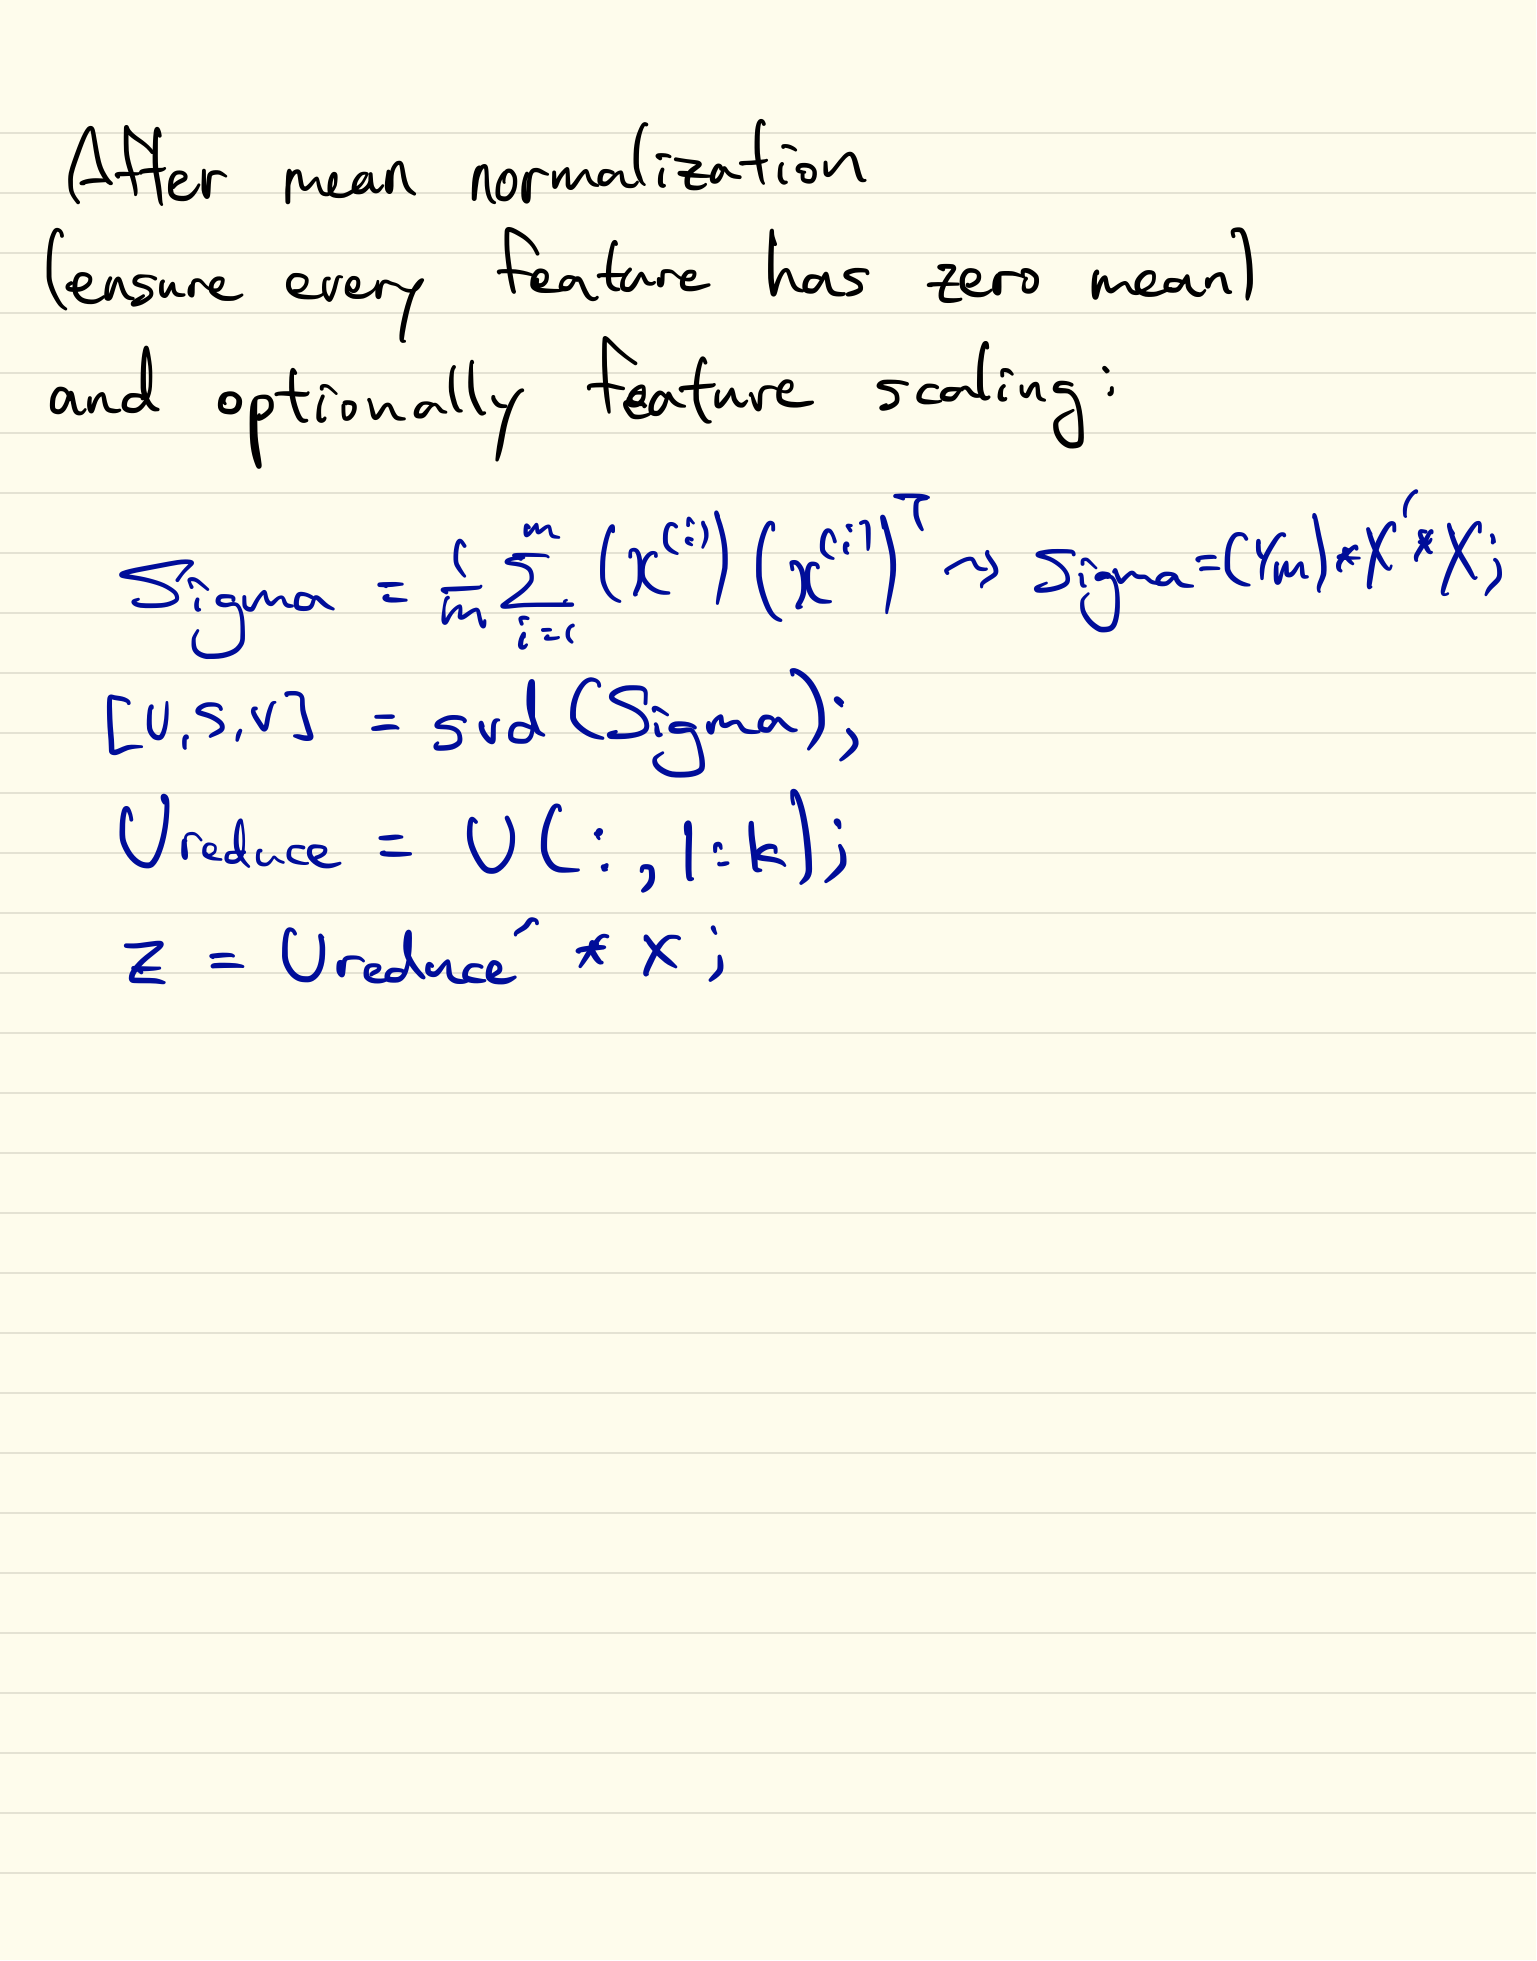 After mean normalization
(ensure every feature has zero mean)
and optionally feature scaling:
Sigma = 1/m ∑_{i=1}^{m} (x^{(i)}) (x^{(i)})^T ⇝ Sigma = (1/m) * X' * X;
[U,S,V] = svd(Sigma);
Ureduce = U(:, 1:k);
z = Ureduce' * x;